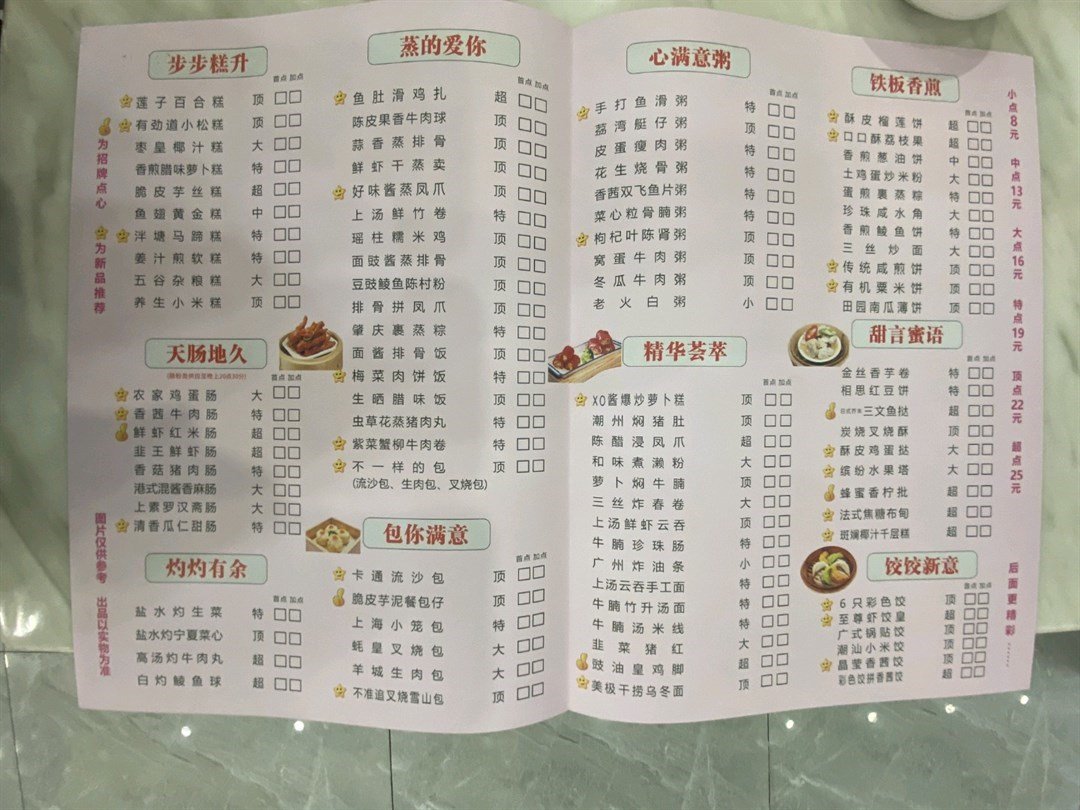 步步糕升
首点 加点
莲子百合糕 顶
有劲道小松糕 顶
枣皇椰汁糕 大
香煎腊味萝卜糕 顶
脆皮芋丝糕 超
鱼翅黄金糕 中
泮塘马蹄糕 特
姜汁煎软糕 特
五谷杂粮糕 大
养生小米糕 顶
为招牌点心
为新品推荐
天肠地久
首点 加点
农家鸡蛋肠 大
香茜牛肉肠 特
鲜虾红米肠 超
韭王鲜虾肠 超
香菇猪肉肠 特
港式混酱香麻肠 大
上素罗汉斋肠 大
清香瓜仁甜肠 特
图片仅供参考 出品以实物为准
灼灼有余
首点 加点
盐水灼生菜 特
盐水灼宁夏菜心 顶
高汤灼牛肉丸 超
白灼鲮鱼球 超
蒸的爱你
首点 加点
鱼肚滑鸡扎 超
陈皮果香牛肉球 顶
蒜香蒸排骨 顶
鲜虾干蒸卖 顶
好味酱蒸凤爪 顶
上汤鲜竹卷 特
瑶柱糯米鸡 顶
面豉酱蒸排骨 顶
豆豉鲮鱼陈村粉 顶
排骨拼凤爪 顶
肇庆裹蒸粽 特
面酱排骨饭 顶
梅菜肉饼饭 特
生晒腊味饭 顶
虫草花蒸猪肉丸 顶
紫菜蟹柳牛肉卷 特
不一样的包 顶
(流沙包、生肉包、叉烧包)
包你满意
首点 加点
卡通流沙包 顶
脆皮芋泥餐包仔 顶
上海小笼包 特
蚝皇叉烧包 大
羊城生肉包 大
不准追叉烧雪山包 顶
心满意粥
首点 加点
手打鱼滑粥 特
荔湾艇仔粥 顶
皮蛋瘦肉粥 顶
花生烧骨粥 特
香茜双飞鱼片粥 特
菜心粒骨腩粥 特
枸杞叶陈肾粥 顶
窝蛋牛肉粥 顶
冬瓜牛肉粥 顶
老火白粥 小
精华荟萃
首点 加点
XO酱爆炒萝卜糕 顶
潮州焖猪肚 顶
陈醋浸凤爪 超
和味煮濑粉 大
萝卜焖牛腩 顶
三丝炸春卷 大
上汤鲜虾云吞 顶
牛腩珍珠肠 特
广州炸油条 小
上汤云吞手工面 特
牛腩竹升汤面 特
牛腩汤米线 特
韭菜猪红 大
豉油皇鸡脚 超
美极干捞乌冬面 顶
铁板香煎
首点 加点
酥皮榴莲饼 超
口口酥荔枝果 超
香煎葱油饼 中
土鸡蛋炒米粉 大
蛋煎裹蒸粽 特
珍珠咸水角 大
香煎鲮鱼饼 特
三丝炒面 大
传统咸煎饼 顶
有机粟米饼 顶
田园南瓜薄饼 顶
甜言蜜语
首点 加点
金丝香芋卷 特
相思红豆饼 特
日式芥末三文鱼挞 超
炭烧叉烧酥 顶
酥皮鸡蛋挞 大
缤纷水果塔 大
蜂蜜香柠批 超
法式焦糖布甸 超
斑斓椰汁千层糕 超
饺饺新意
首点 加点
6只彩色饺 顶
至尊虾饺皇 超
广式锅贴饺 顶
潮汕小米饺 顶
晶莹香茜饺 顶
彩色饺拼香茜饺 超
小点8元 中点13元 大点16元 特点19元 顶点22元 超点25元
后面更精彩